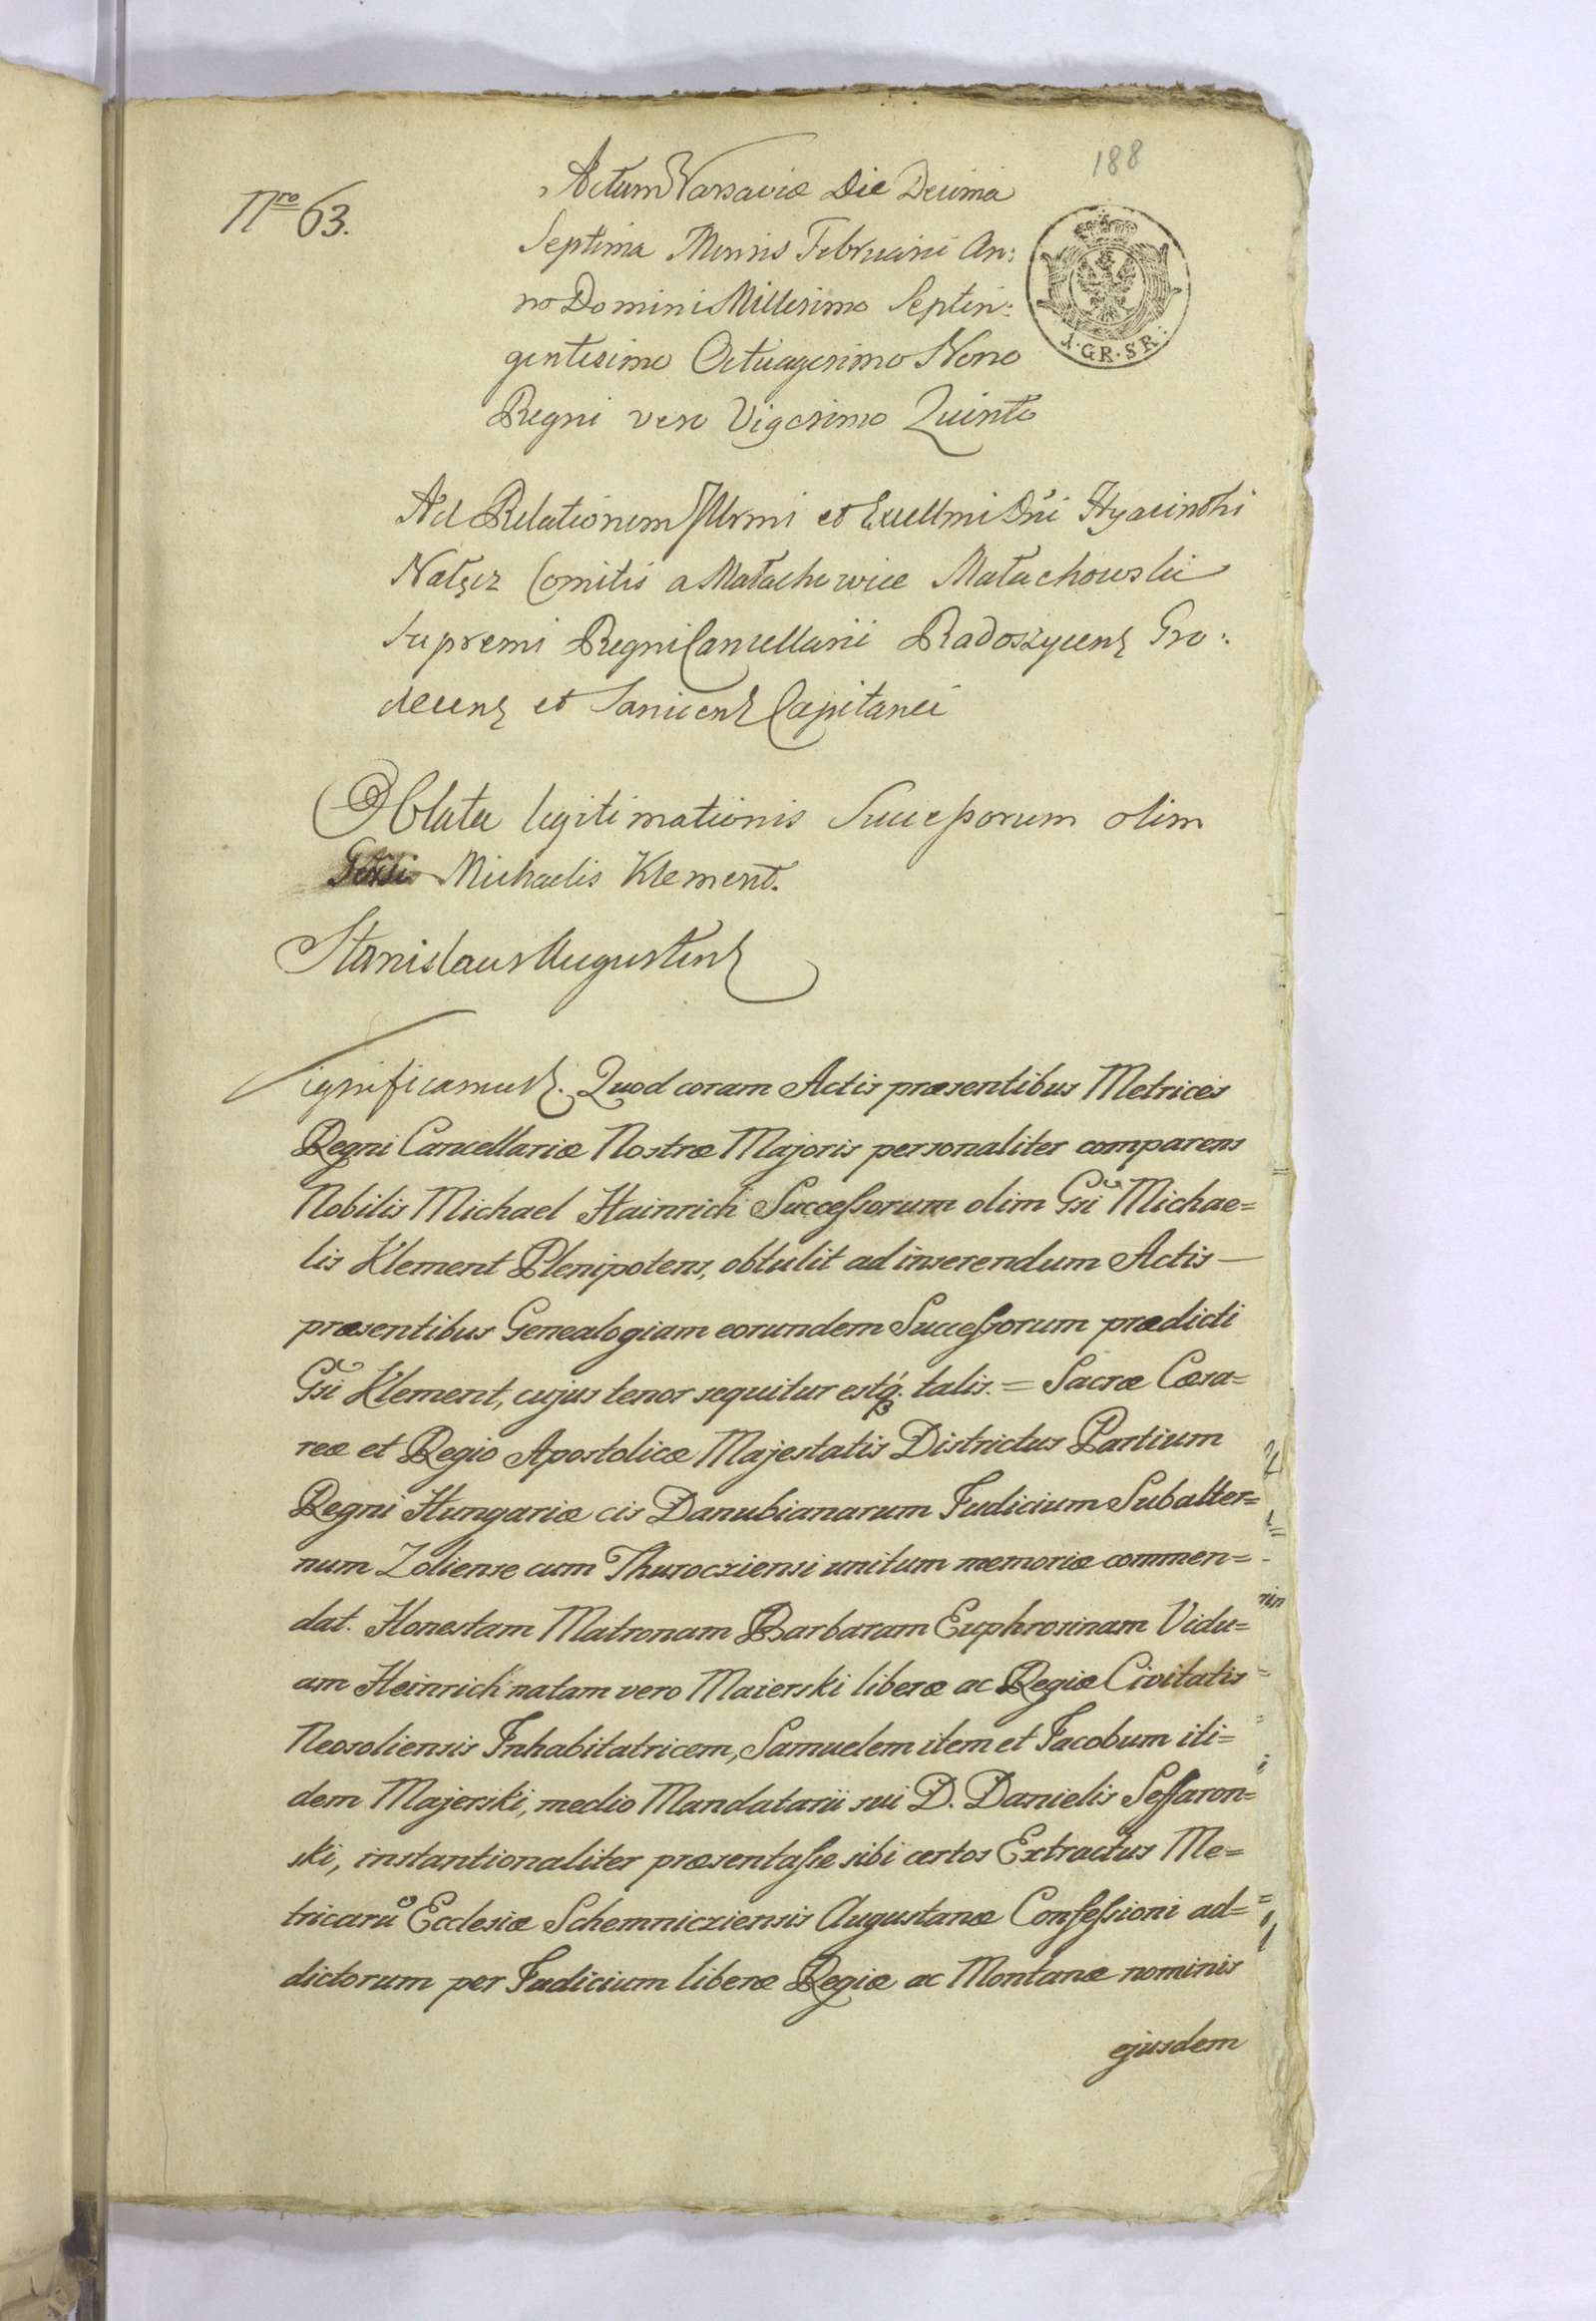 188
Nro 63.
Actum Varsaviæ Die Decima
Septima Mensis Februarii An:
no Domini Millesimo Septin:
gentesimo Octuagesimo Nono
Regni vero Vigesimo Quinto
1·GR·SR:
Ad Relationem Illrmi et Excellmi Dni Hyacinthi
Nałęcz Comitis a Małachowice Małachowski
Supremi Regni Cancellarii Radoszycens Gro:
decens et Sanicens Capitanei
Oblata legitimationis Successorum olim
Michaelis Klement.
Stanislaus Augustus
Significamus. Quod coram Actis præsentibus Metrices
Regni Cancellariæ Nostræ Majoris personaliter comparens
Nobilis Michael Hainrich Successorum olim Gsi Michae=
lis Klement Plenipotens, obtulit ad inserendum Actis —
præsentibus Genealogiam eorundem Successorum prædicti
Gsi Klement, cujus tenor sequitur estq. talis. = Sacræ Cæsa=
reæ et Regio Apostolicæ Majestatis Districtus Partium
Regni Hungariæ cis Danubianarum Judicium Subalter=
num Zoliense cum Thurocziensi unitum memoriæ commen=
dat. Honestam Matronam Barbaram Euphrosinam Vidu=
am Heinrich natam vero Maierski liberæ ac Regiæ Civitatis
Neosoliensis Inhabitatricem, Samuelem item et Jacobum iti=
dem Majerski, medio Mandatarii sui D. Danielis Sessaron=
ski, instantionaliter præsentasse sibi certos Extractus Me=
tricarũ Ecclesiæ Schemnicziensis Augustanæ Confessioni ad=
dictorum per Judicium liberæ Regiæ ac Montanæ nominis
ejusdem